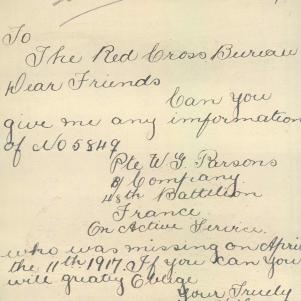 To
The Red Cross Bureau
Dear Friends
Can you
give me any imformation
of No 5849
Pte W G Parsons
B Company
48th Battilion
France
On Active Service.
who was missing on April
the 11th 1917. If you can you
will greatly Oblige
Your Truely